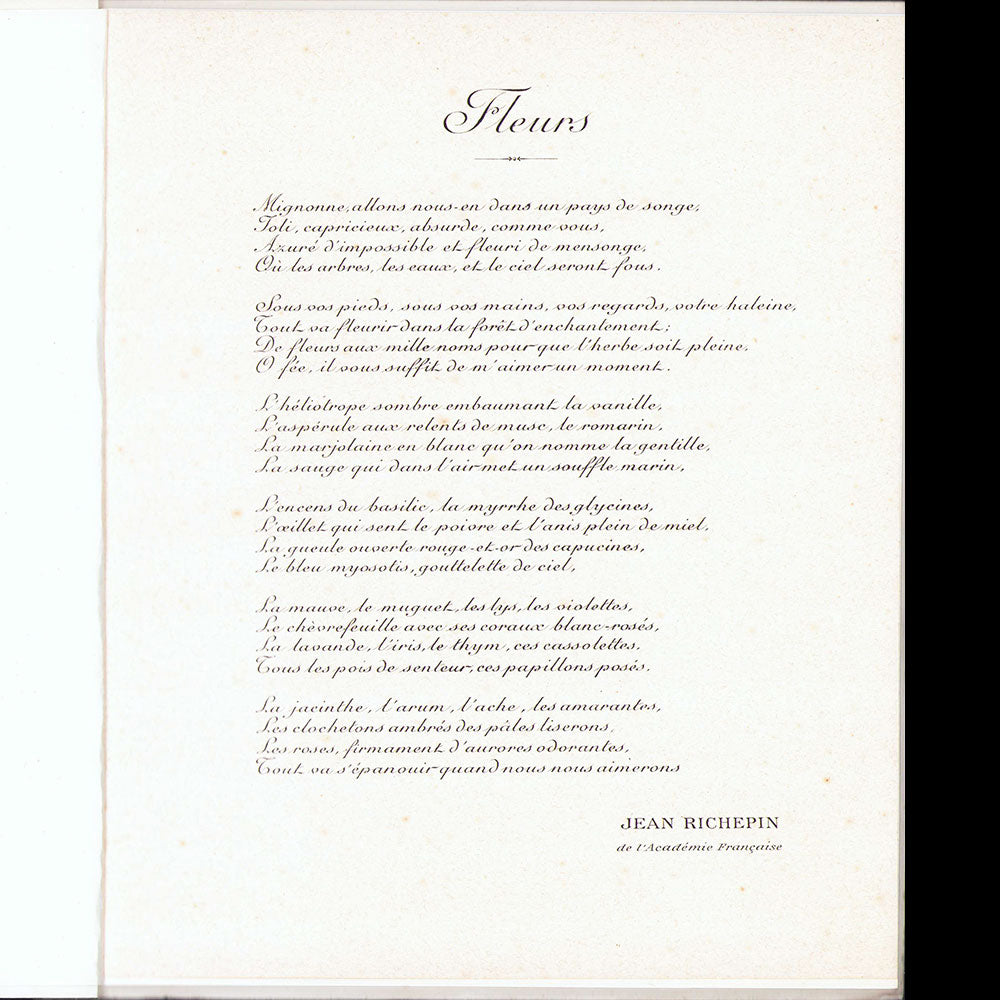 Fleurs
Mignonne, allons nous-en dans un pays de songe,
Joli, capricieux, absurde, comme vous,
Azuré d'impossible et fleuri de mensonge,
Où les arbres, les eaux, et le ciel seront fous.
Sous vos pieds, sous vos mains, vos regards, votre haleine,
Tout va fleurir dans la forêt d'enchantement;
De fleurs aux mille noms pour que l'herbe soit pleine,
O fée, il vous suffit de m'aimer un moment.
L'héliotrope sombre embaumant la vanille,
L'aspérule aux relents de musc, le romarin,
La marjolaine en blanc qu'on nomme la gentille,
La sauge qui dans l'air met un souffle marin,
L'encens du basilic, la myrrhe des glycines,
L'œillet qui sent le poivre et l'anis plein de miel,
La gueule ouverte rouge-et-or des capucines,
Le bleu myosotis, gouttelette de ciel,
La mauve, le muguet, les lys, les violettes,
Le chèvrefeuille avec ses coraux blanc-rosés,
La lavande, l'iris, le thym, ces cassolettes,
Tous les pois de senteur, ces papillons posés,
La jacinthe, l'arum, l'ache, les amarantes,
Les clochetons ambrés des pâles liserons,
Les roses, firmament d'aurores odorantes,
Tout va s'épanouir quand nous nous aimerons
JEAN RICHEPIN
de l'Académie Française